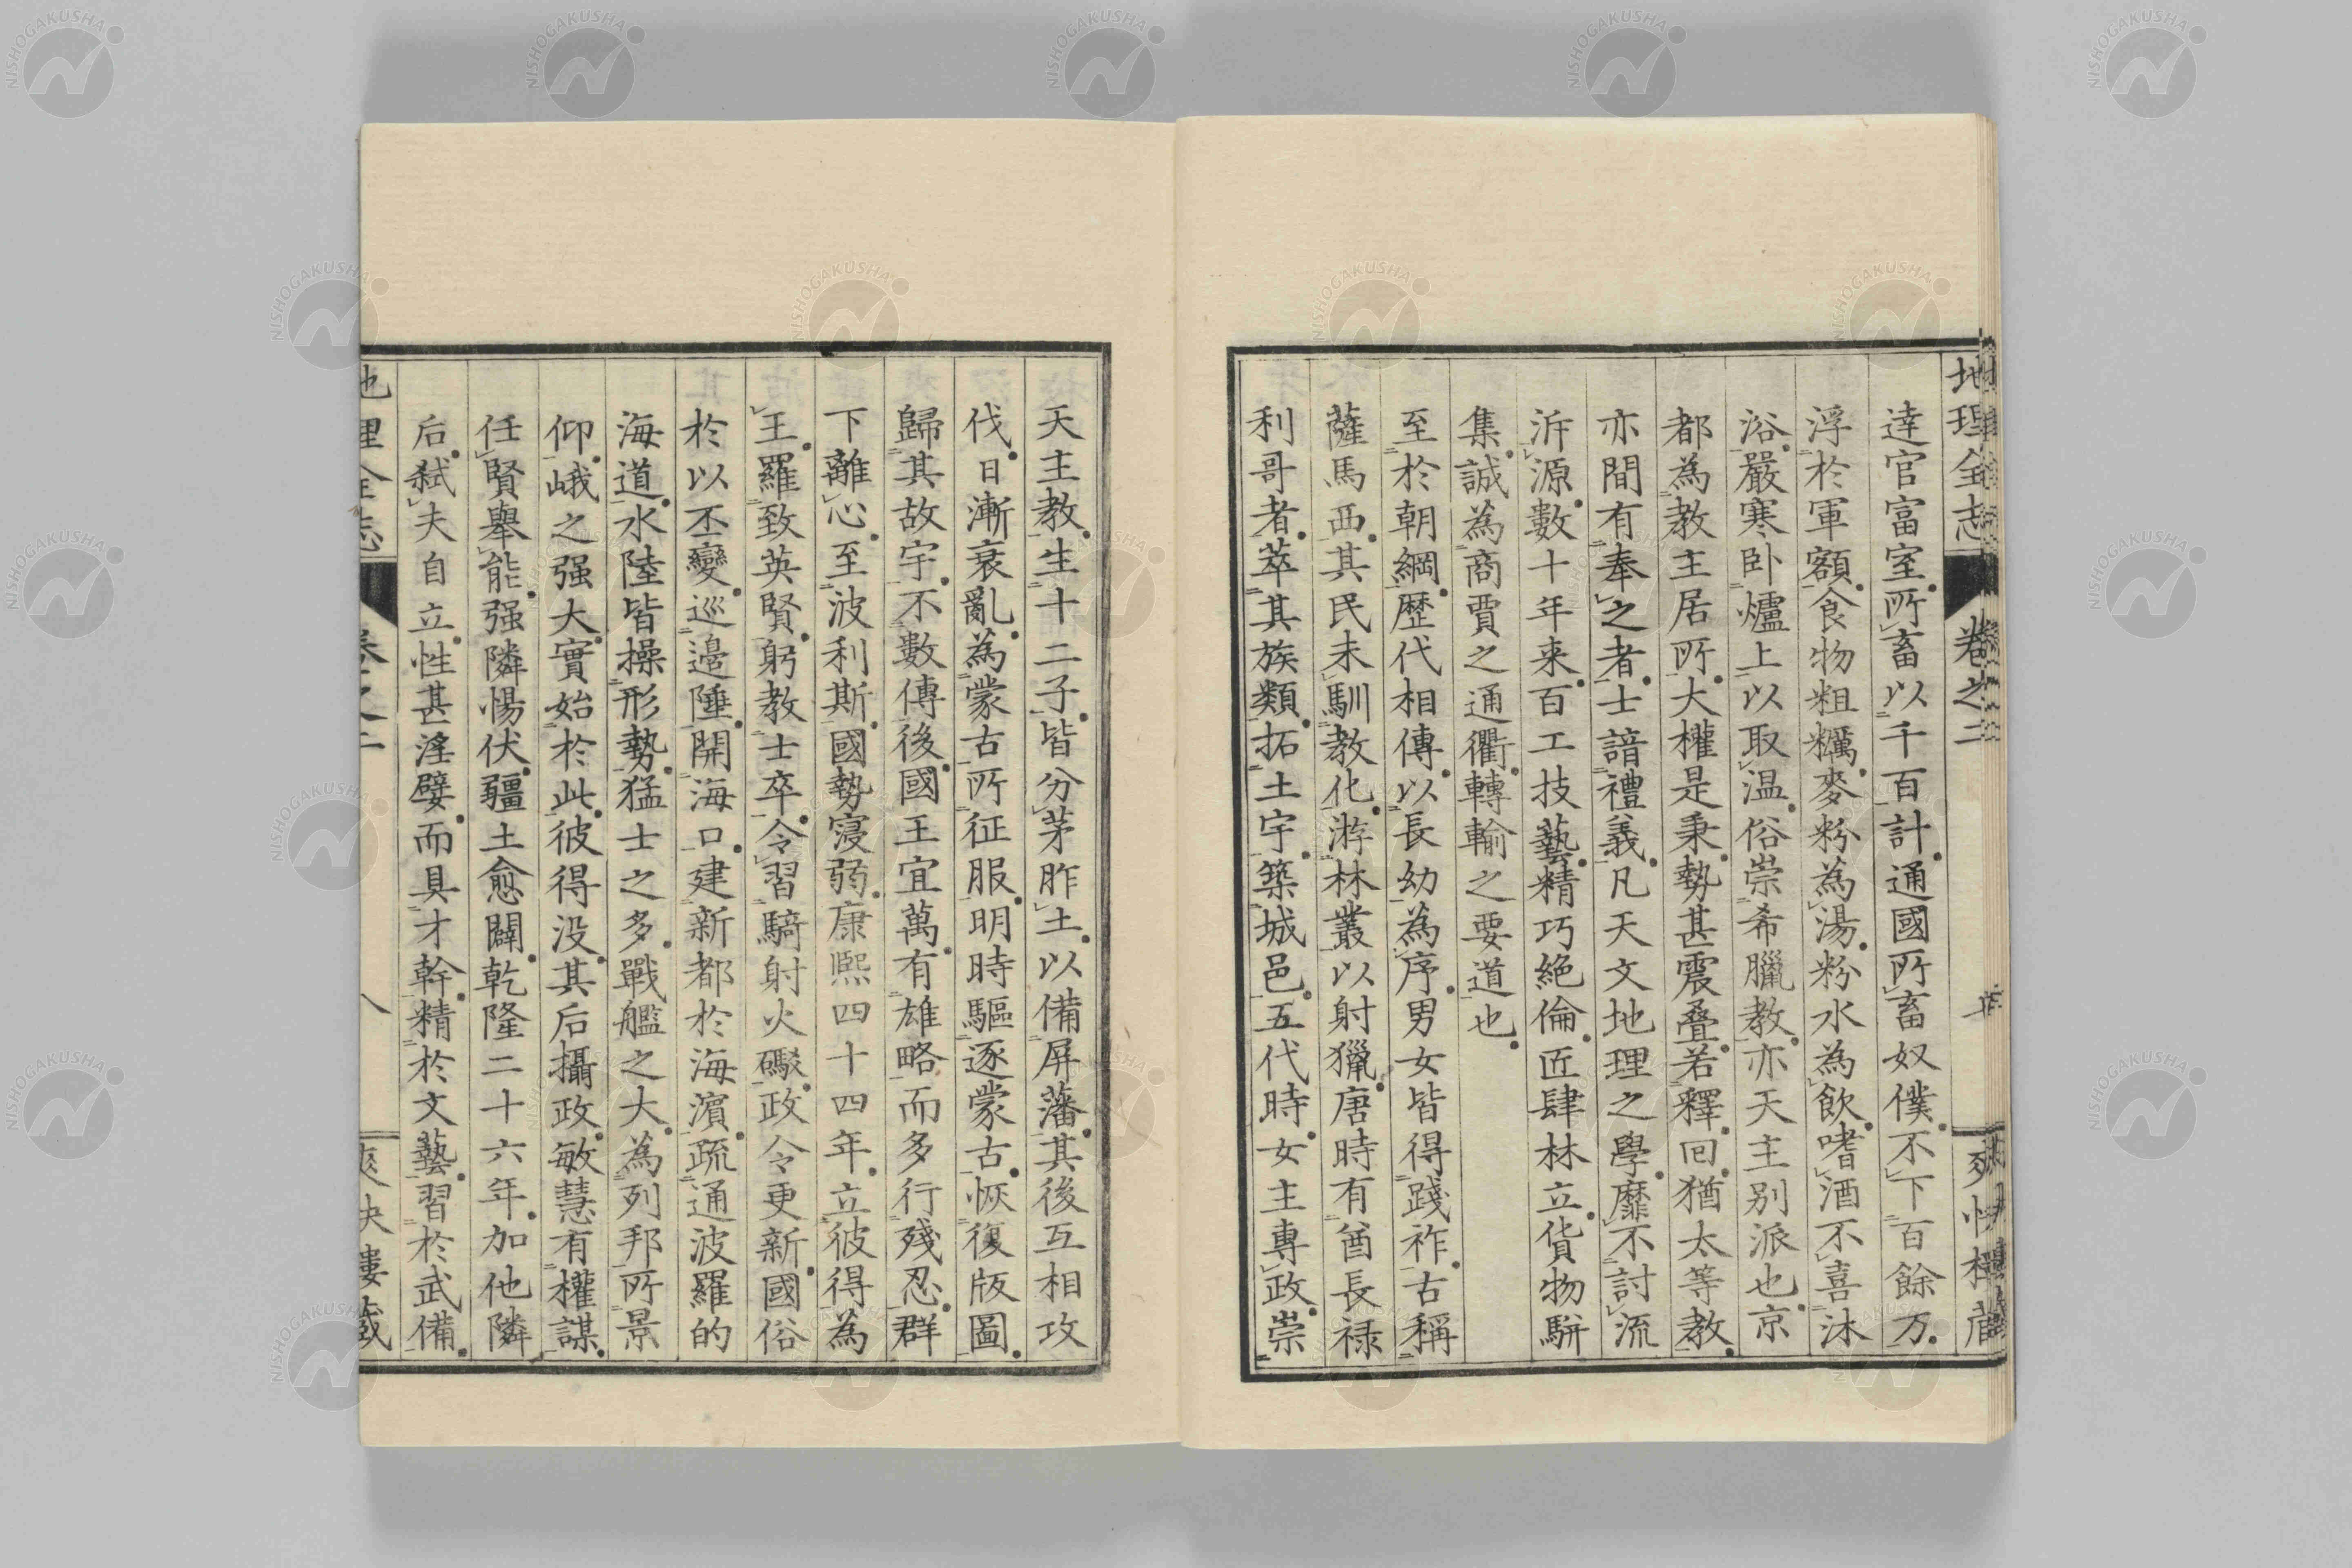 地理全志 卷之二
達官富室所畜以千百計通國所畜奴僕不下百餘万
浮於軍額食物粗糲麥粉為湯粉水為飲嗜酒不喜沐
浴嚴寒卧爐上以取温俗崇希臘教亦天主別派也京
都為教主居所大權是秉勢甚震叠若釋回猶太等教
亦間有奉之者士諳禮義凡天文地理之學靡不討流
泝源數十年来百工技藝精巧絕倫匠肆林立貨物駢
集誠為商賈之通衢轉輸之要道也
至於朝綱歷代相傳以長幼為序男女皆得踐祚古稱
薩馬西其民未馴教化游林叢以射獵唐時有酋長禄
利哥者萃其族類拓土宇築城邑五代時女主專政崇
天主教生十二子皆分茅胙土以備屏藩其後互相攻
伐日漸衰亂為蒙古所征服明時驅逐蒙古恢復版圖
歸其故宇不數傳後國王宜萬有雄略而多行殘忍群
下離心至波利斯國勢寖弱康熙四十四年立彼得為
王羅致英賢躬教士卒令習騎射火礮政令更新國俗
於以丕變巡邊陲開海口建新都於海濵疏通波羅的
海道水陸皆操形勢猛士之多戰艦之大為列邦所景
仰峨之强大實始於此彼得没其后攝政敏慧有權謀
任賢舉能强隣惕伏疆土愈闢乾隆二十六年加他隣
后弑夫自立性甚淫嬖而具才幹精於文藝習於武備
地理全志 卷之二 八 爽快樓藏
NISHOGAKUSHA